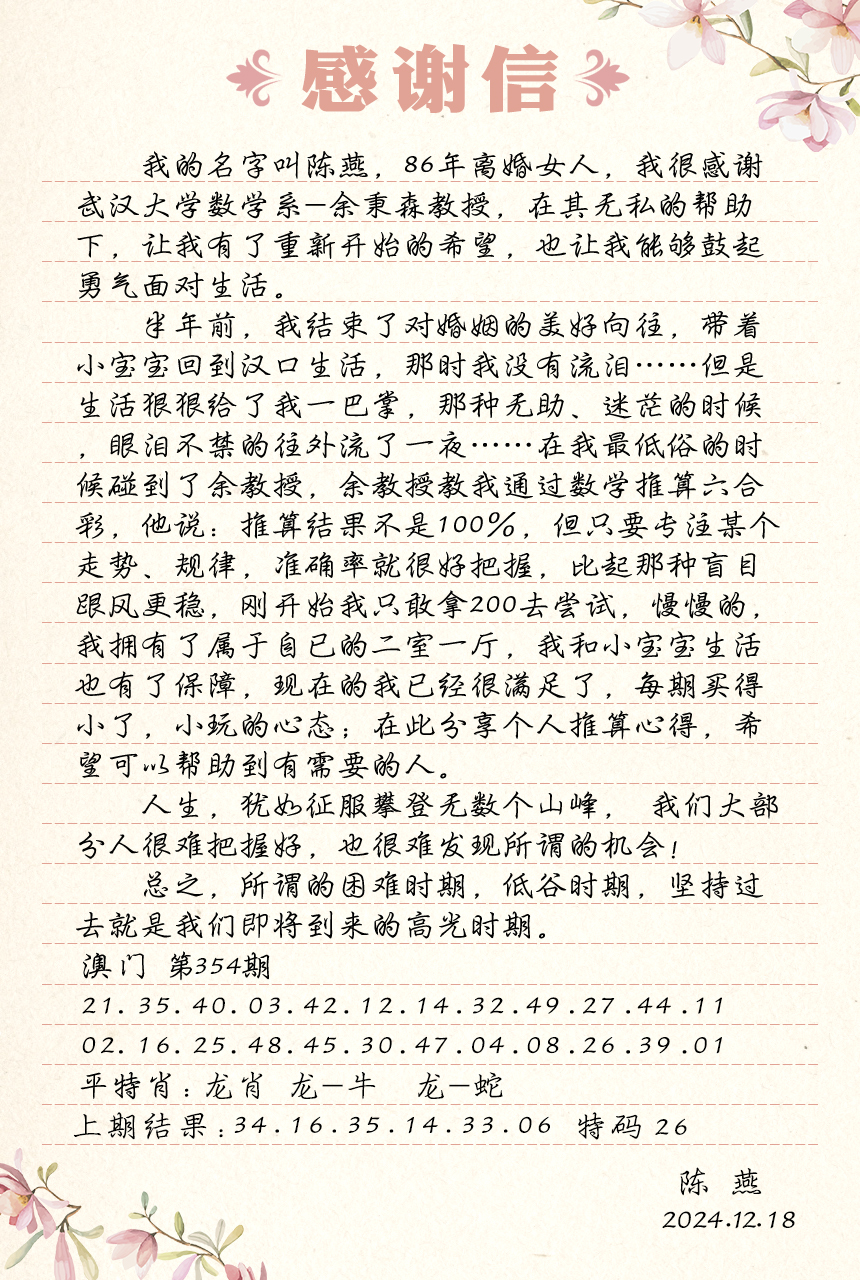 感谢信
我的名字叫陈燕，86年离婚女人，我很感谢
武汉大学数学系—余秉森教授，在其无私的帮助
下，让我有了重新开始的希望，也让我能够鼓起
勇气面对生活。
半年前，我结束了对婚姻的美好向往，带着
小宝宝回到汉口生活，那时我没有流泪……但是
生活狠狠给了我一巴掌，那种无助、迷茫的时候
，眼泪不禁的往外流了一夜……在我最低俗的时
候碰到了余教授，余教授教我通过数学推算六合
彩，他说：推算结果不是100%，但只要专注某个
走势、规律，准确率就很好把握，比起那种盲目
跟风更稳，刚开始我只敢拿200去尝试，慢慢的，
我拥有了属于自已的二室一厅，我和小宝宝生活
也有了保障，现在的我已经很满足了，每期买得
小了，小玩的心态；在此分享个人推算心得，希
望可以帮助到有需要的人。
人生，犹如征服攀登无数个山峰， 我们大部
分人很难把握好，也很难发现所谓的机会！
总之，所谓的困难时期，低谷时期，坚持过
去就是我们即将到来的高光时期。
澳门 第354期
21.35.40.03.42.12.14.32.49.27.44.11
02.16.25.48.45.30.47.04.08.26.39.01
平特肖：龙肖 龙—牛 龙—蛇
上期结果：34.16.35.14.33.06 特码 26
陈 燕
2024.12.18